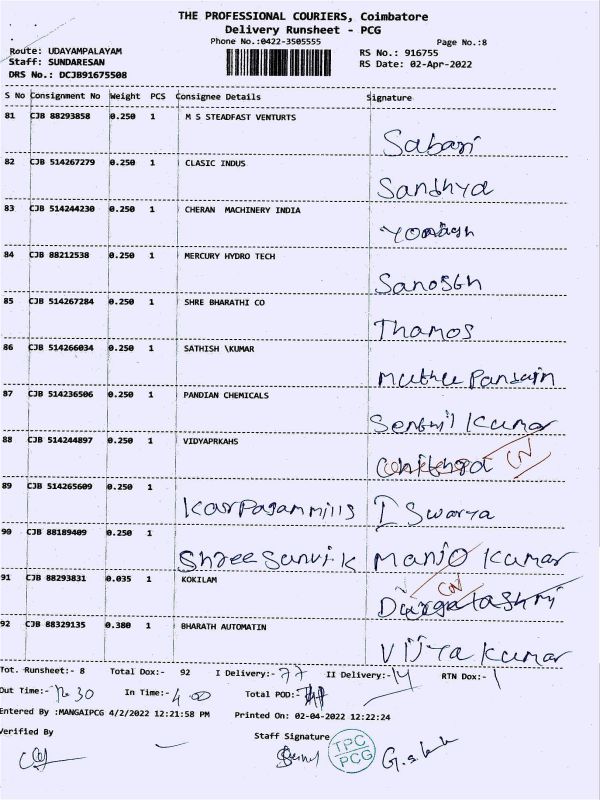 THE PROFESSIONAL COURIERS, Coimbatore
Delivery Runsheet - PCG
Phone No.:0422-3505555 Page No.:8
Route: UDAYAMPALAYAM RS No.: 916755
Staff: SUNDARESAN RS Date: 02-Apr-2022
DRS No.: DCJB91675508
S No Consignment No Weight PCS Consignee Details Signature
81 CJB 88293858 0.250 1 M S STEADFAST VENTURTS
Sabari
82 CJB 514267279 0.250 1 CLASIC INDUS
Sandhya
83 CJB 514244230 0.250 1 CHERAN MACHINERY INDIA
84 CJB 88212538 0.250 1 MERCURY HYDRO TECH
Sanosth
85 CJB 514267284 0.250 1 SHRE BHARATHI CO
Thamos
86 CJB 514266034 0.250 1 SATHISH \KUMAR
Muthu Pandain
87 CJB 514236506 0.250 1 PANDIAN CHEMICALS
Senthil Kumar
88 CJB 514244897 0.250 1 VIDYAPRKAHS
CN
89 CJB 514265609 0.250 1
Karpagam mills I Swarya
90 CJB 88189409 0.250 1
Shree Sanvik Manjo Kumar
91 CJB 88293831 0.035 1 KOKILAM
CN
92 CJB 88329135 0.380 1 BHARATH AUTOMATIN
Vijya Kumar
Tot. Runsheet:- 8 Total Dox:- 92 I Delivery:- 77 II Delivery:- 14 RTN Dox:- 1
Out Time:- 30 In Time:- 4 00 Total POD:-
Entered By :MANGAIPCG 4/2/2022 12:21:58 PM Printed On: 02-04-2022 12:22:24
Verified By Staff Signature
TPC
PCG